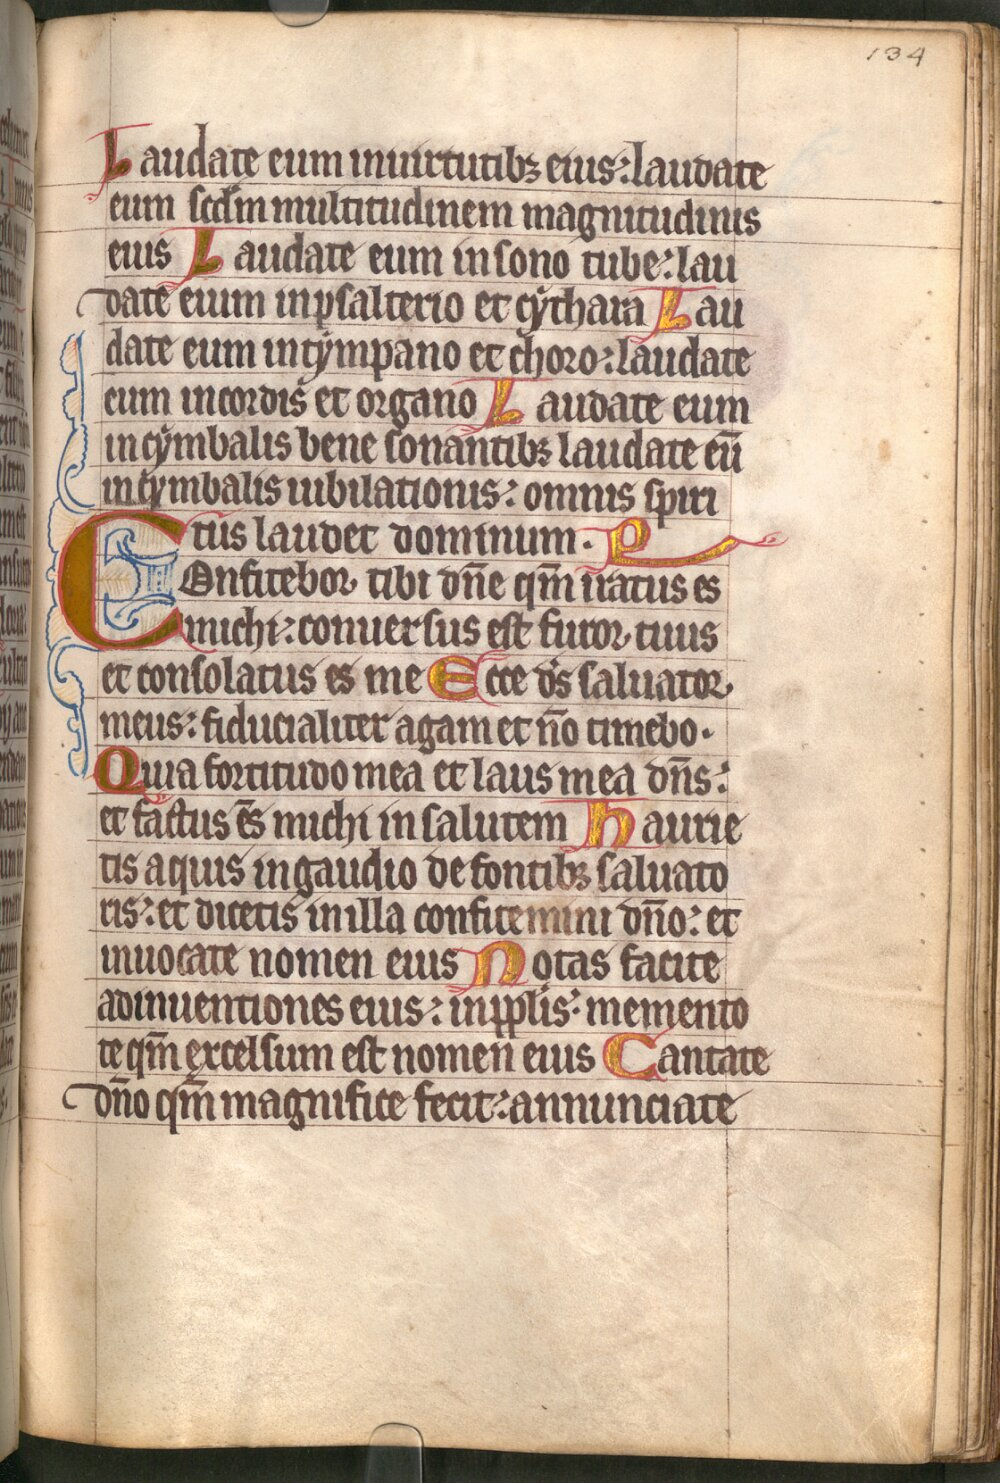 134
Laudate eum inuirtutibꝫ eius: laudate
eum scdm̄ multitudinem magnitudinis
eius Laudate eum insono tube: lau
date eum inpsalterio et cẏthara Lau
date eum intẏmpano et choro: laudate
eum incordis et organo Laudate eum
incẏmbalis bene sonantibꝫ laudate eū
incẏmbalis iubilationis: omnis spiri
tus laudet dominum.
Confitebor tibi dn̄e qm̄ iratus es
michi: conuersus est furor tuus
et consolatus es me Ecce ds̄ saluator
meus: fiducialiter agam et nō timebo.
Quia fortitudo mea et laus mea dn̄s:
et factus ēs michi in salutem Haurie
tis aquis ingaudio de fontibꝫ saluato
ris: et dicetis inilla confitemini dn̄o: et
inuocate nomen eius Notas facite
adinuentiones eius: inppl̄is: memento
te qm̄ excelsum est nomen eius Cantate
dn̄o qm̄ magnifice fecit: annunciate